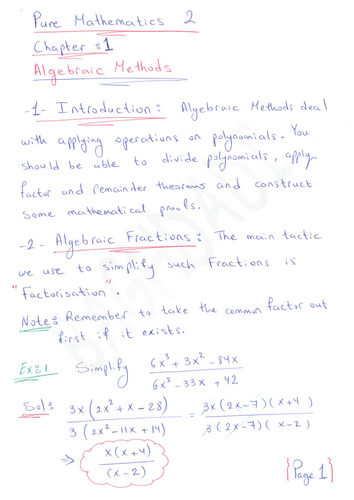 Pure Mathematics 2
Chapter :1
Algebraic Methods
-1- Introduction : Algebraic Methods deal
with applying operations on polynomials. You
should be able to divide polynomials, apply
factor and remainder theorems and construct
some mathematical proofs.
-2- Algebraic Fractions : The main tactic
we use to simplify such Fractions is
"Factorisation".
Note: Remember to take the common factor out
first if it exists.
Ex:1 Simplify (6x³ + 3x² - 84x) / (6x² - 33x + 42)
Sol: 3x(2x² + x - 28) / 3(2x² - 11x + 14) = 3x(2x-7)(x+4) / 3(2x-7)(x-2)
⇒ x(x+4) / (x-2)
{Page 1}